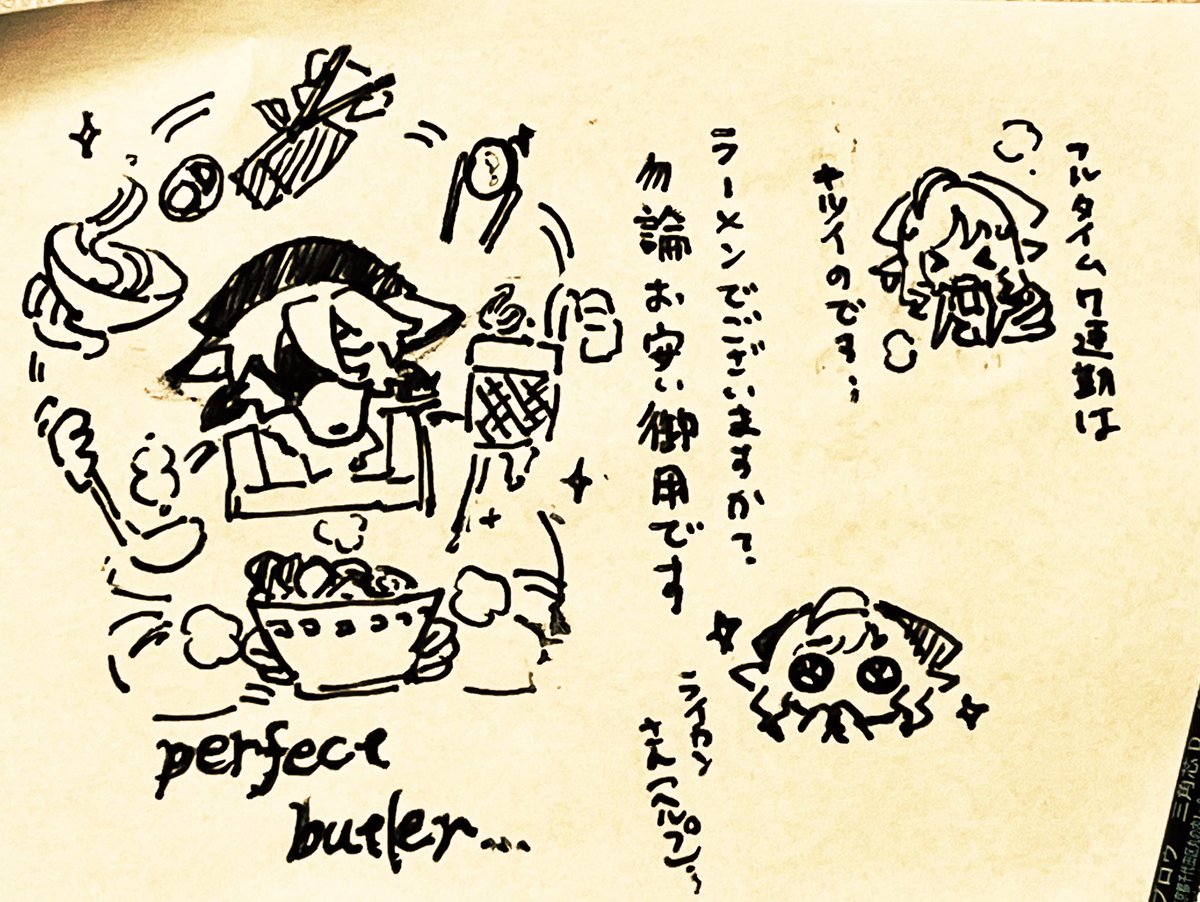 フルタイム7連勤は
キツイのです…
ラーメンでございますか?
勿論お安い御用です
ライカン
さん
perfect
butler...
三角芯